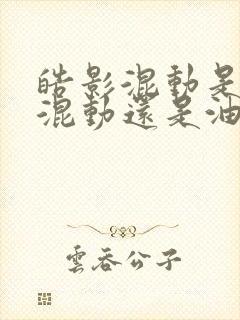 皓影混動是
混動還是油
雲吞公子